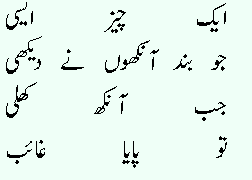 ایک چیز ایسی
جو بند آنکھوں نے دیکھی
جب آنکھ کھلی
تو پایا غائب